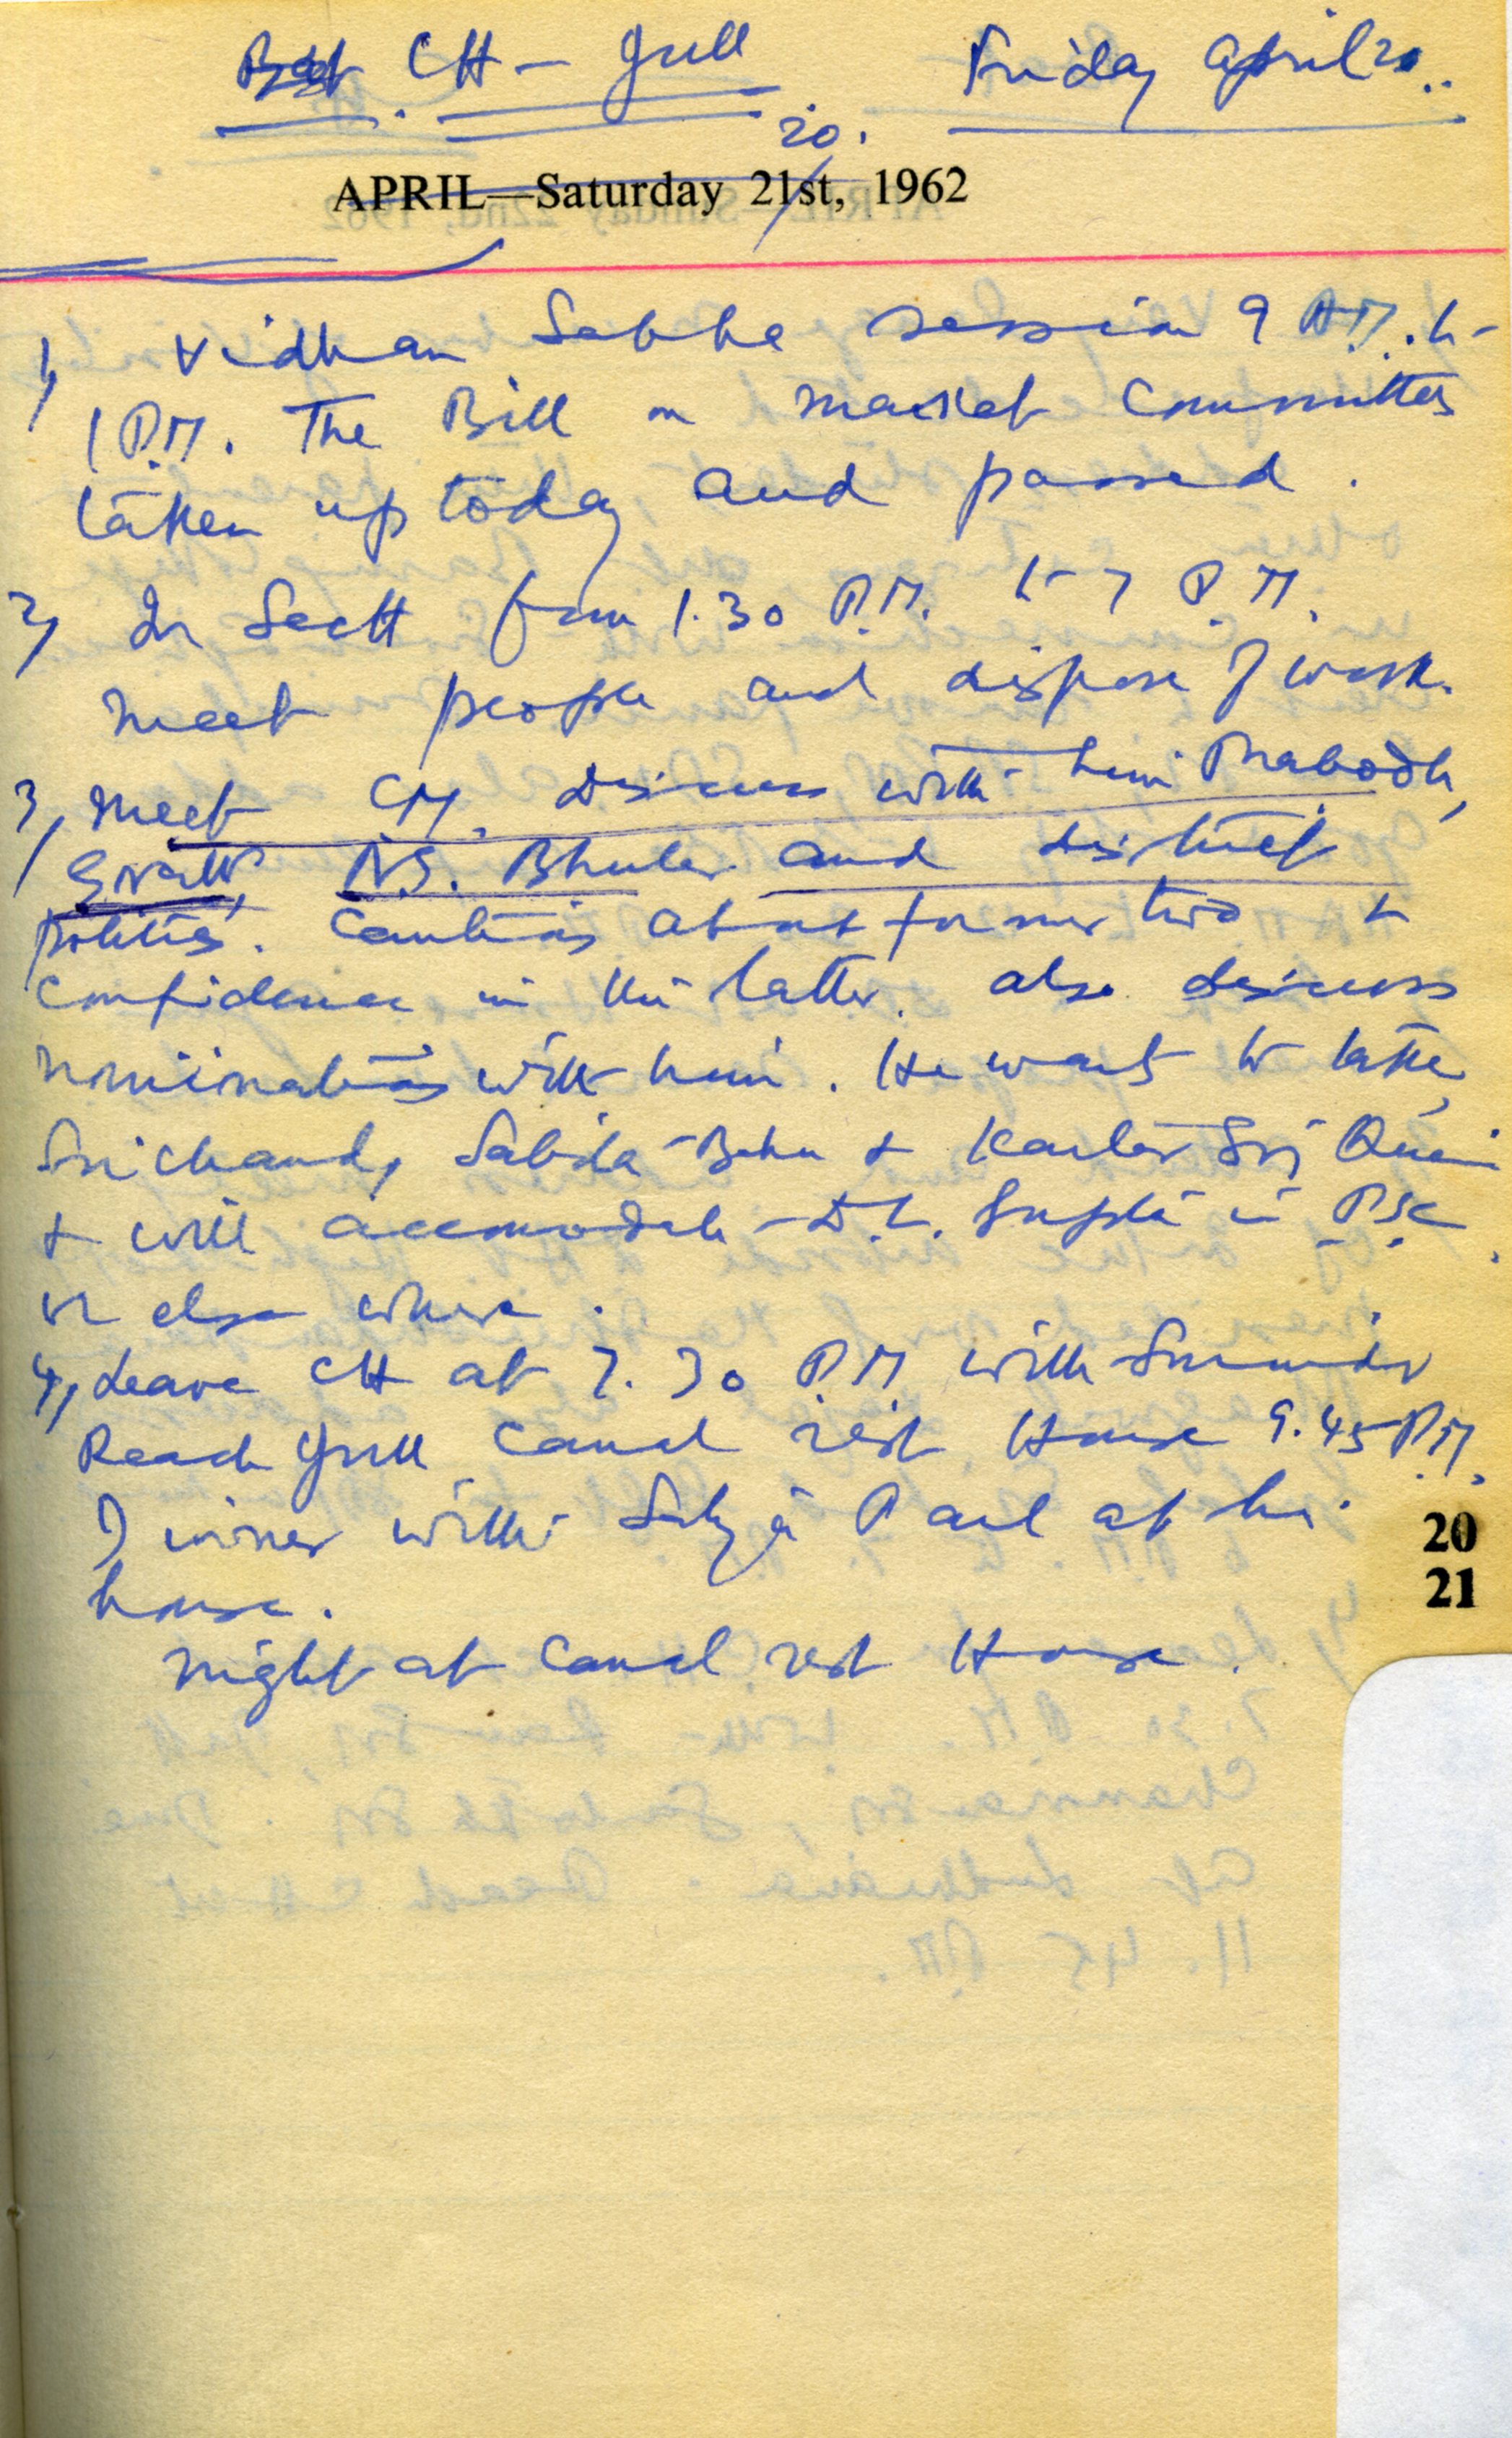 CH - Jull Friday April 20..
20.
APRIL—Saturday 21st, 1962
1, Vidhan Sabha session 9 A.M. to
1 P.M. The Bill on Market Committees
taken up today and passed.
2, In Sectt from 1.30 P.M. to 7 P.M.
Meet people and dispose of work.
3, Meet CM. Discuss with him Prabodh,
N.S. Bhuler and district
politics. Cautious about former two &
confidence in the latter. Also discuss
nominations with him. He wants to take
Srichand, Sabida Behn & Kartar Sng
& will accomodate D.L. Gupta in P.S.C.
or else where.
4, Leave CH at 7.30 P.M with Surinder
Reach Jull Canal rest House 9.45 P.M.
Dinner with Satya Paul at his
house.
Night at Canal rest House.
20
21